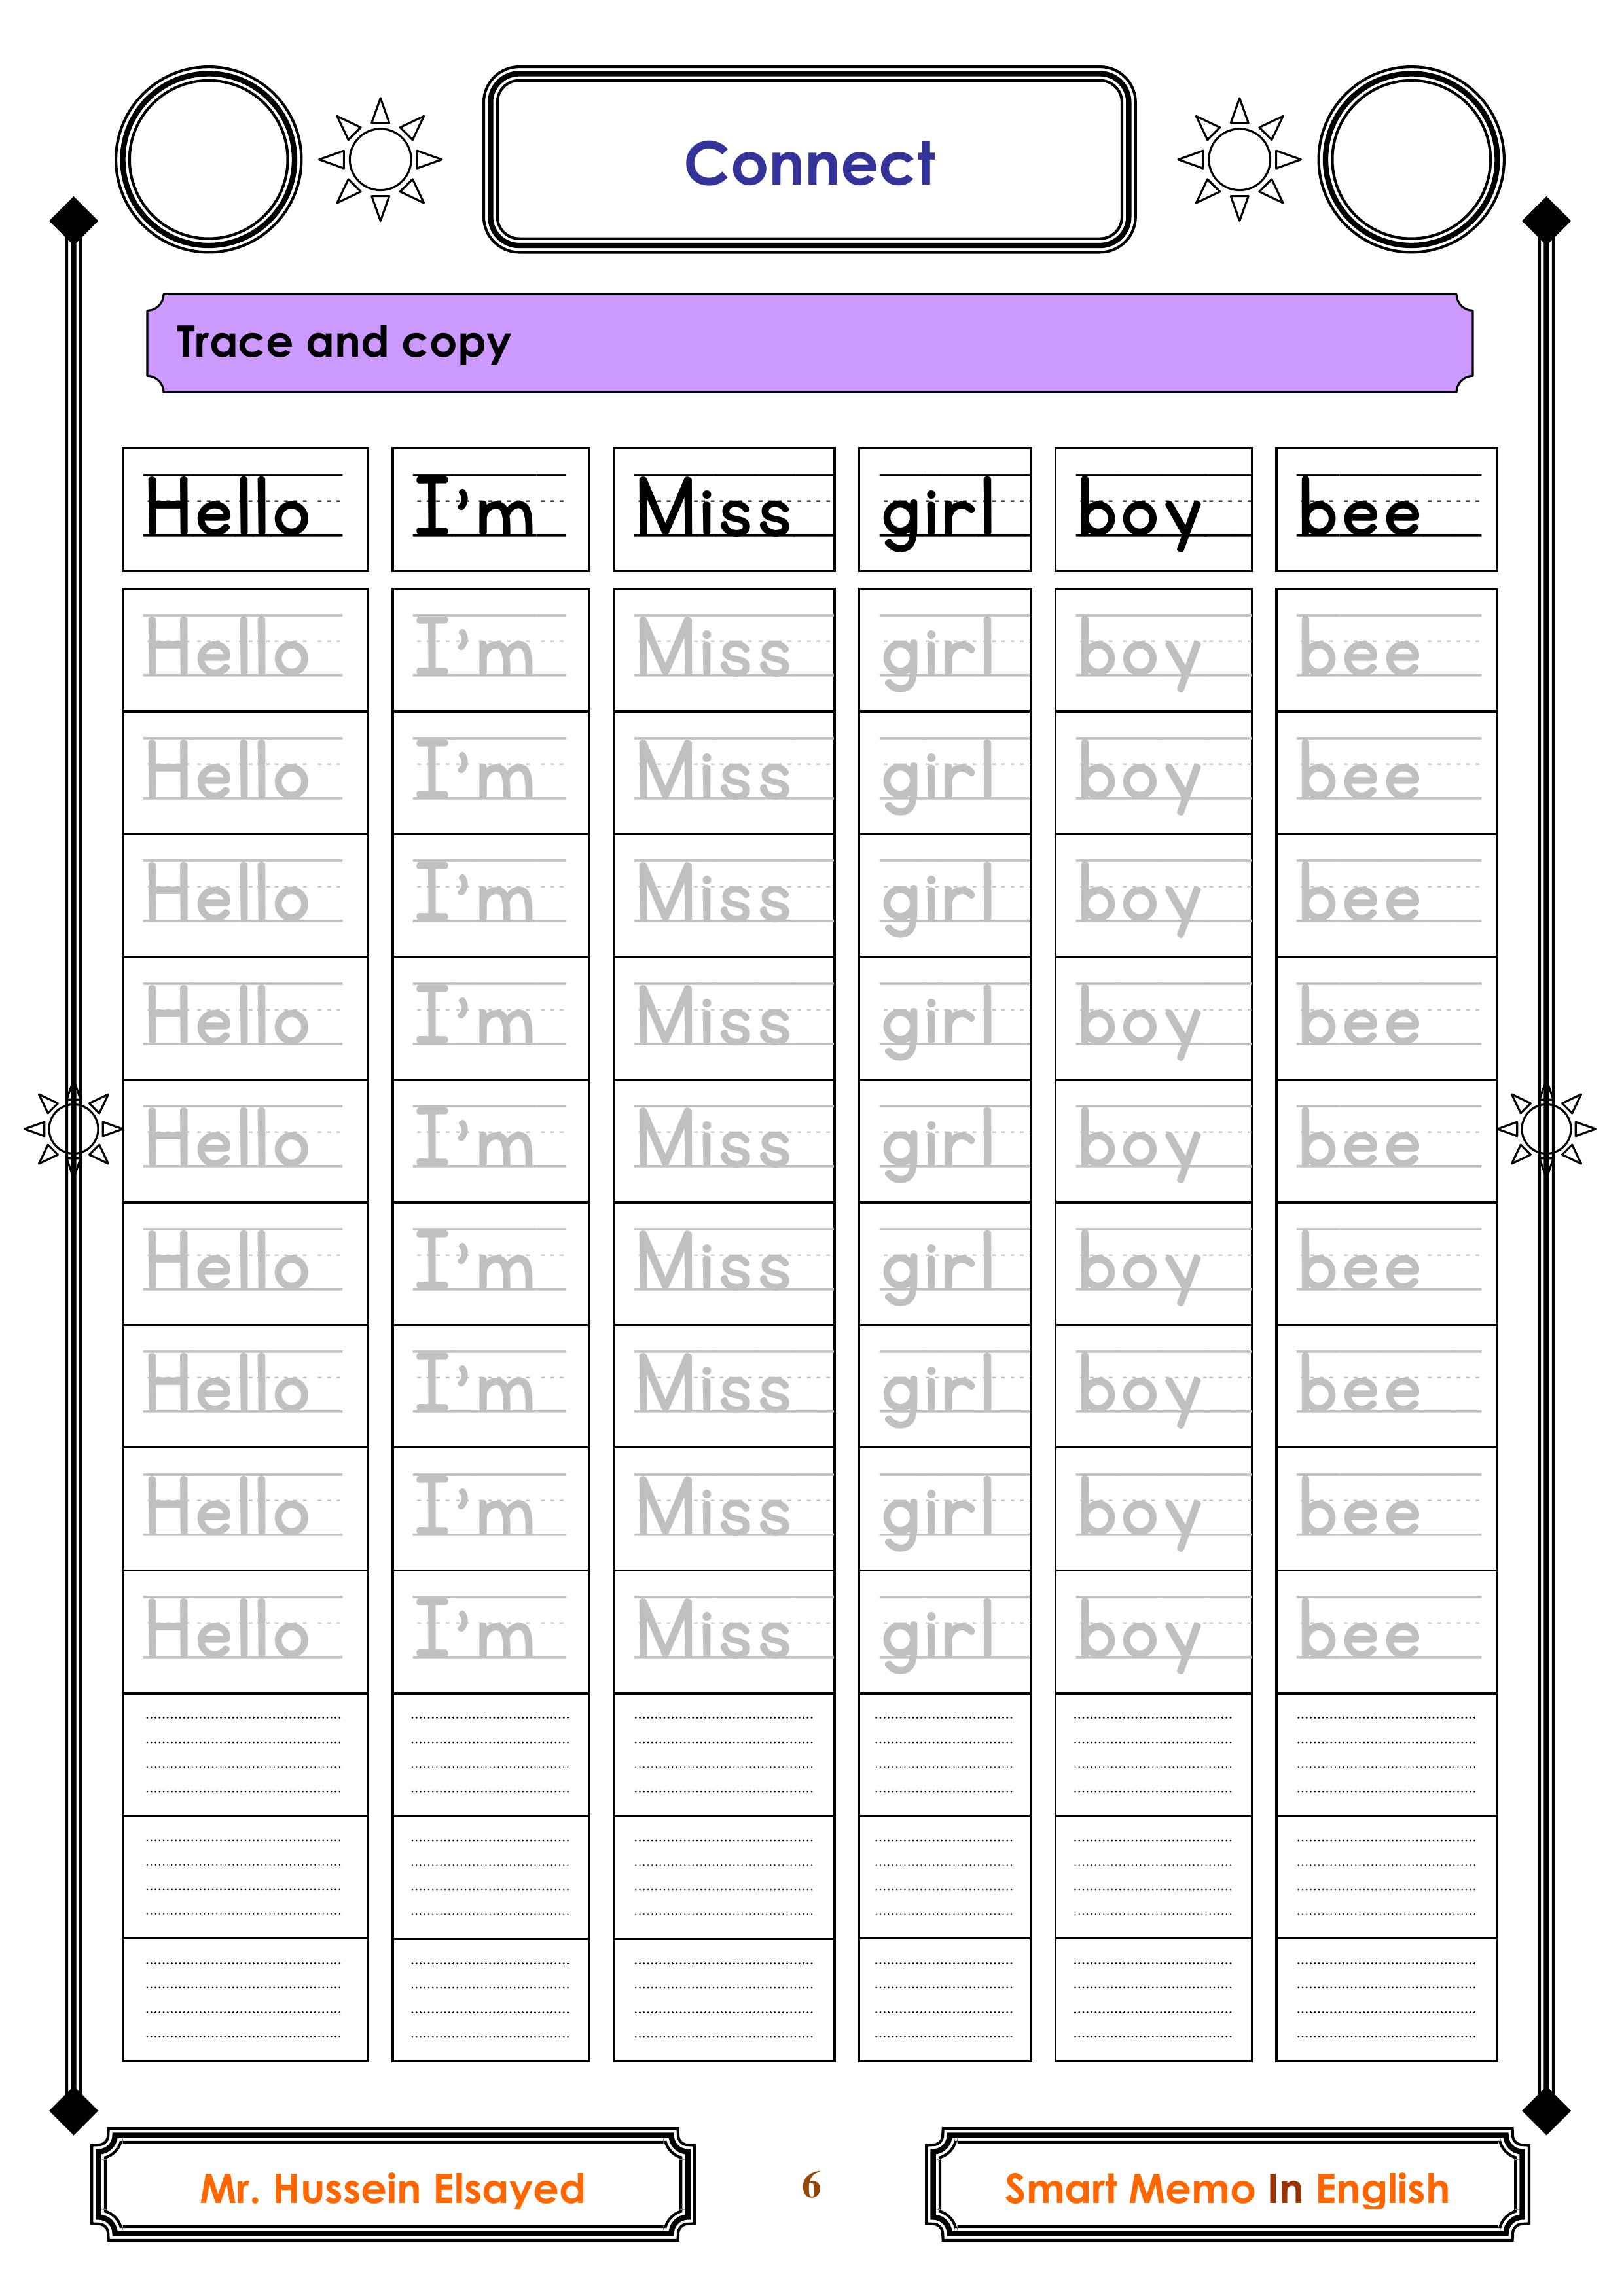 Connect
Trace and copy
Hello I'm Miss girl boy bee
Hello I'm Miss girl boy bee
Hello I'm Miss girl boy bee
Hello I'm Miss girl boy bee
Hello I'm Miss girl boy bee
Hello I'm Miss girl boy bee
Hello I'm Miss girl boy bee
Hello I'm Miss girl boy bee
Hello I'm Miss girl boy bee
Hello I'm Miss girl boy bee
Mr. Hussein Elsayed 6 Smart Memo In English